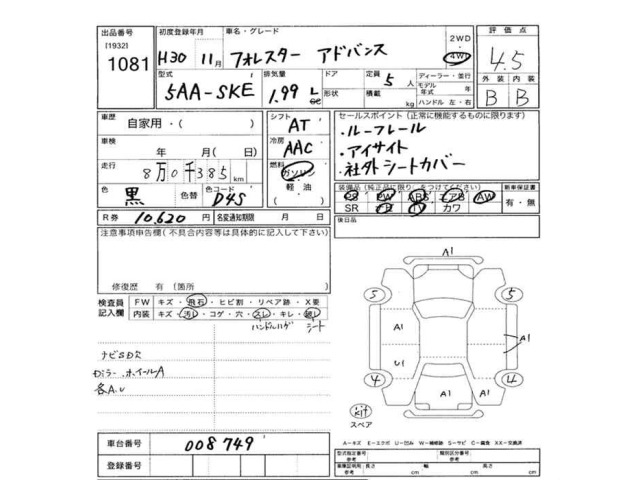 出品番号 初度登録年月 車名・グレード 2WD 評価点
[1932]
1081 H30 11月 フォレスター アドバンス 4W 4.5
型式 排気量 ドア 定員 5人 ディーラー・並行 外装 内装
5AA-SKE 1.99 L 形状 積載 kg モデル年式 年 B B
cc ハンドル 左・右
車歴 自家用・( ) シフト AT セールスポイント(正常に機能するものに限ります)
車検 年 月( 日) 冷房 AAC ・ルーフレール
走行 8万0千385km 燃料 ガソリン ・アイサイト
軽油 ・社外シートカバー
色 黒 色替 色コード D4S ( ) 装備品(純正品に限り)をつけてください) 新車保証書
PS PW ABS エアB AW 有・無
SR カワ
R券 10,620円 名変通知期限 月 日 後日品
注意事項申告欄(不具合内容等は具体的に記入して下さい)
修復歴 有〔箇所 〕
A1
5 5
検査員記入欄 FW キズ・飛石・ヒビ割・リペア跡・X要
内装 キズ・汚し・コゲ・穴・スレ・キレ・
ハンドルハゲ シート
A1 A1
ナビSDR
U1
ドアミラー.ホイールA
各A.U
4 4
A1 A1
kit
スペア
A1
車台番号 008749
A-キズ E-エクボ U-凹み W-補修跡 S-サビ C-腐食 XX-交換済
登録番号 型式指定番号 参考 類別区分番号 参考
車庫証明用 参考 長さ cm 幅 cm 高さ cm